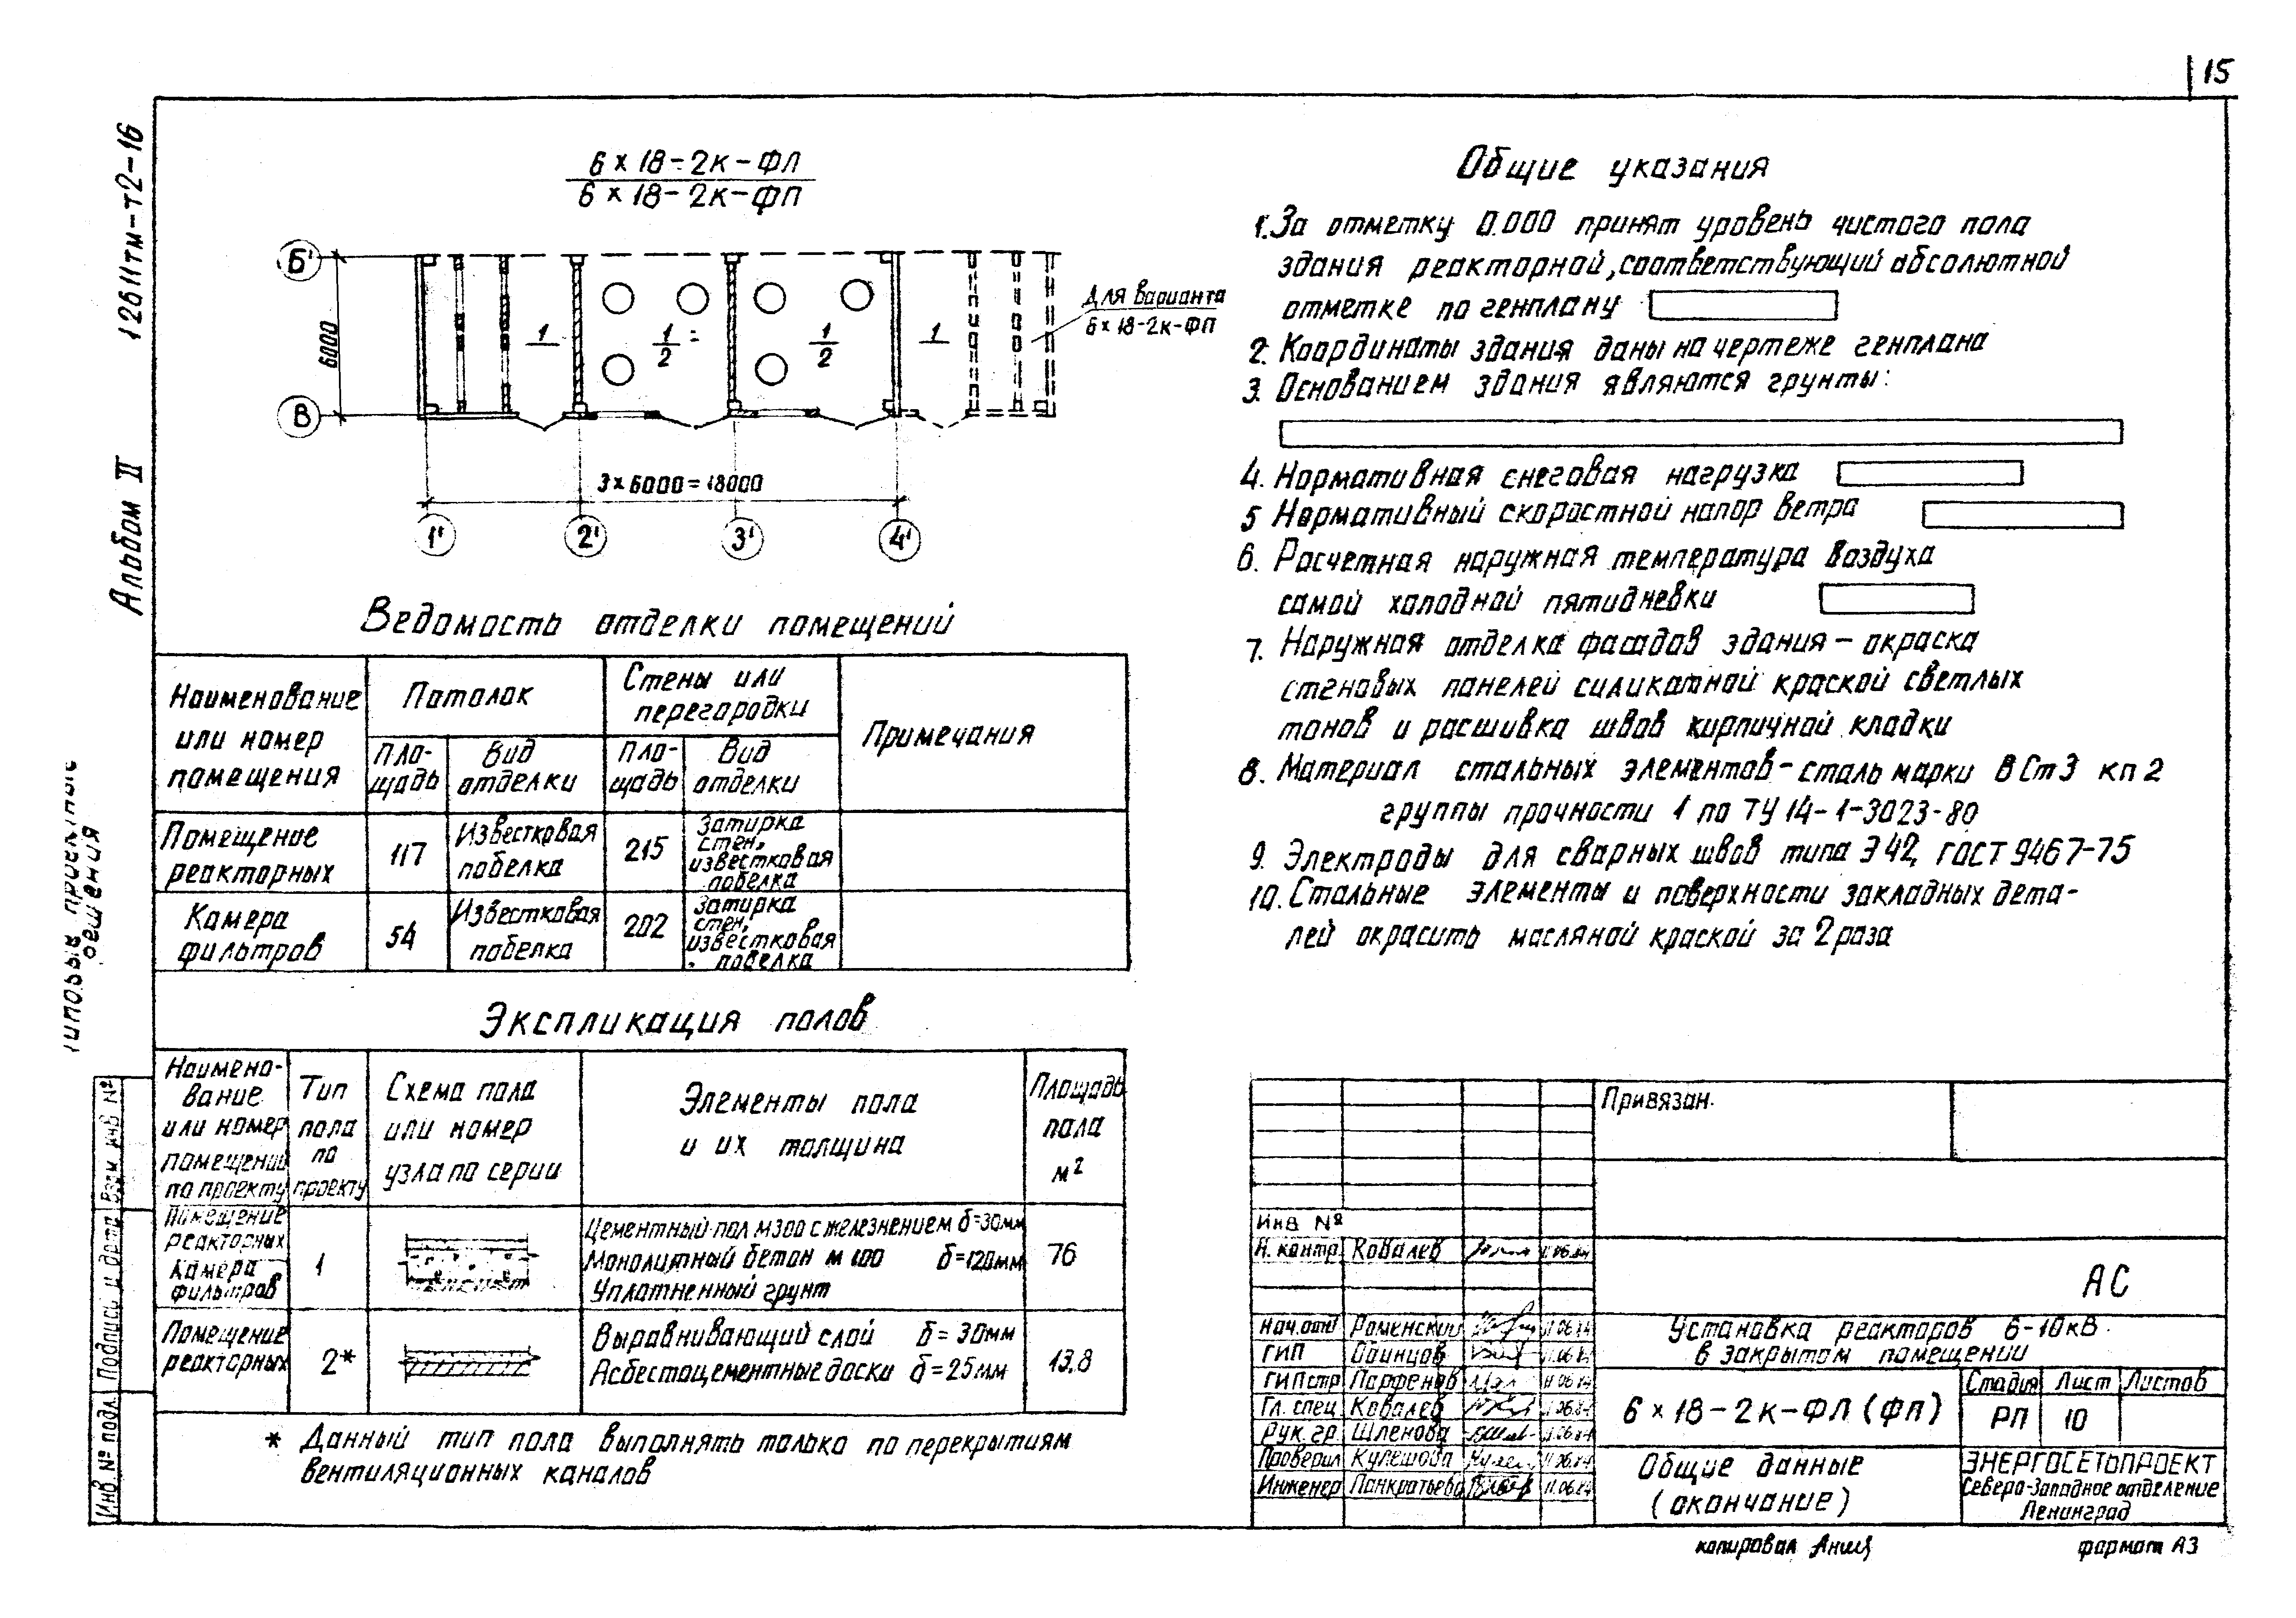 15
12611тм-т2-16
Альбом II
Типовые проектные
решения
6×18-2к-ФЛ
6×18-2к-ФП
Б'
В
6000
1
1
2
1
2
1
Для варианта
6×18-2к-ФП
3×6000=18000
1'
2'
3'
4'
Ведомость отделки помещений
Наименование
или номер
помещения
Потолок
Стены или
перегородки
Примечания
Пло-
щадь
Вид
отделки
Пло-
щадь
Вид
отделки
Помещение
реакторных
117
Известковая
побелка
215
Затирка
стен,
известковая
побелка
Камера
фильтров
54
Известковая
побелка
202
Затирка
стен,
известковая
побелка
Экспликация полов
Наимено-
вание
или номер
помещений
по проекту
Тип
пола
по
проекту
Схема пола
или номер
узла по серии
Элементы пола
и их толщина
Площадь
пола
м²
Помещение
реакторных
Камера
фильтров
1
Цементный пол М300 с железнением δ=30мм
Монолитный бетон М100 δ=120мм
Уплотненный грунт
76
Помещение
реакторных
2*
Выравнивающий слой δ=30мм
Асбестоцементные доски δ=25мм
13,8
* Данный тип пола выполнять только по перекрытиям
вентиляционных каналов
Общие указания
1. За отметку 0.000 принят уровень чистого пола
здания реакторной, соответствующий абсолютной
отметке по генплану
2. Координаты здания даны на чертеже генплана
3. Основанием здания являются грунты:
4. Нормативная снеговая нагрузка
5 Нормативный скоростной напор ветра
6. Расчетная наружная температура воздуха
самой холодной пятидневки
7. Наружная отделка фасадов здания - окраска
стеновых панелей силикатной краской светлых
тонов и расшивка швов кирпичной кладки
8. Материал стальных элементов-сталь марки ВСт3 кп2
группы прочности 1 по ТУ 14-1-3023-80
9. Электроды для сварных швов типа Э42, ГОСТ 9467-75
10. Стальные элементы и поверхности закладных дета-
лей окрасить масляной краской за 2 раза
Привязан.
Инв №
Н. контр. Ковалев 11.06.84
АС
Нач. отд Роменский 11.06.84
ГИП Одинцов 11.06.84
ГИП стр Парфенов 11.06.84
Гл. спец Ковалев 11.06.84
Рук. гр. Шленова 11.06.84
Проверил Кулешова 11.06.84
Инженер Панкратьева 11.06.84
Установка реакторов 6-10кВ
в закрытом помещении
6×18-2к-ФЛ (ФП)
Стадия Лист Листов
РП 10
Общие данные
(окончание)
ЭНЕРГОСЕТЬПРОЕКТ
Северо-Западное отделение
Ленинград
копировал
формат А3
Взам инв №
Подпись и дата
Инв № подл